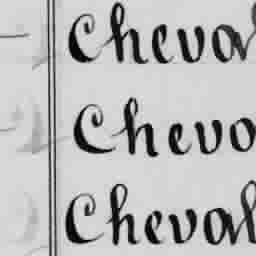 Cheval
Chevo
Cheval